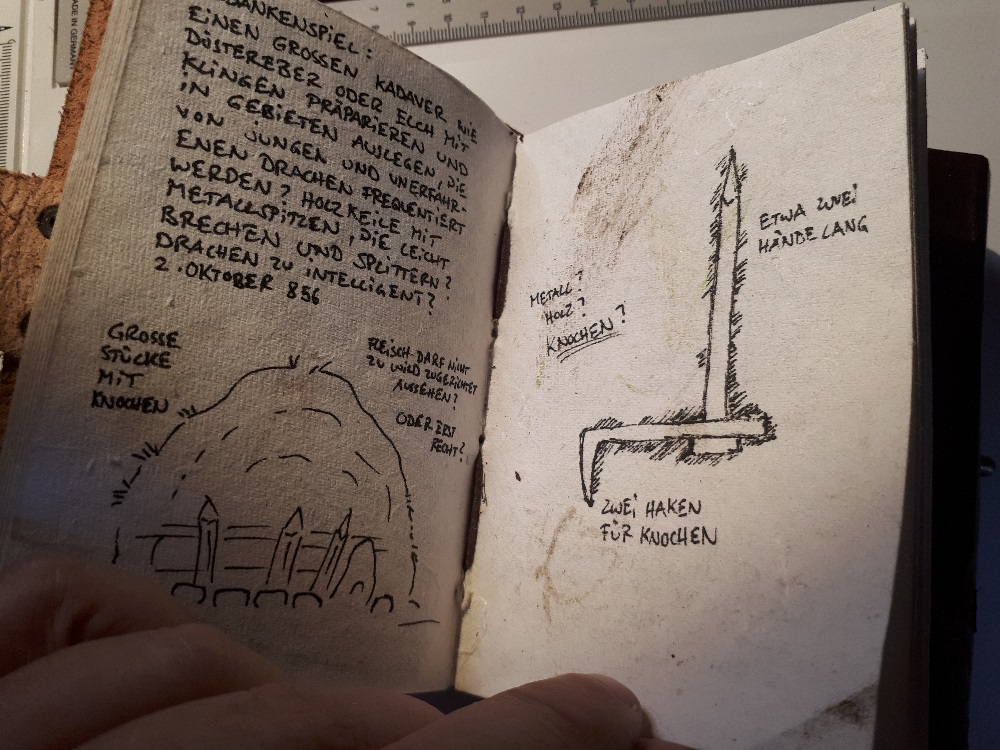 GEDANKENSPIEL:
EINEN GROSSEN KADAVER WIE
DÜSTEREBER ODER ELCH MIT
KLINGEN PRÄPARIEREN UND
IN GEBIETEN AUSLEGEN, DIE
VON JUNGEN UND UNERFAHR-
ENEN DRACHEN FREQUENTIERT
WERDEN? HOLZKEILE MIT
METALLSPITZEN, DIE LEICHT
BRECHEN UND SPLITTERN?
DRACHEN ZU INTELLIGENT?
2. OKTOBER 856
GROSSE
STÜCKE
MIT
KNOCHEN
FLEISCH DARF NICHT
ZU WILD ZUGERICHTET
AUSSEHEN?
ODER ERST
RECHT?
METALL?
HOLZ?
KNOCHEN?
ETWA ZWEI
HÄNDE LANG
ZWEI HAKEN
FÜR KNOCHEN
MADE IN GERMANY